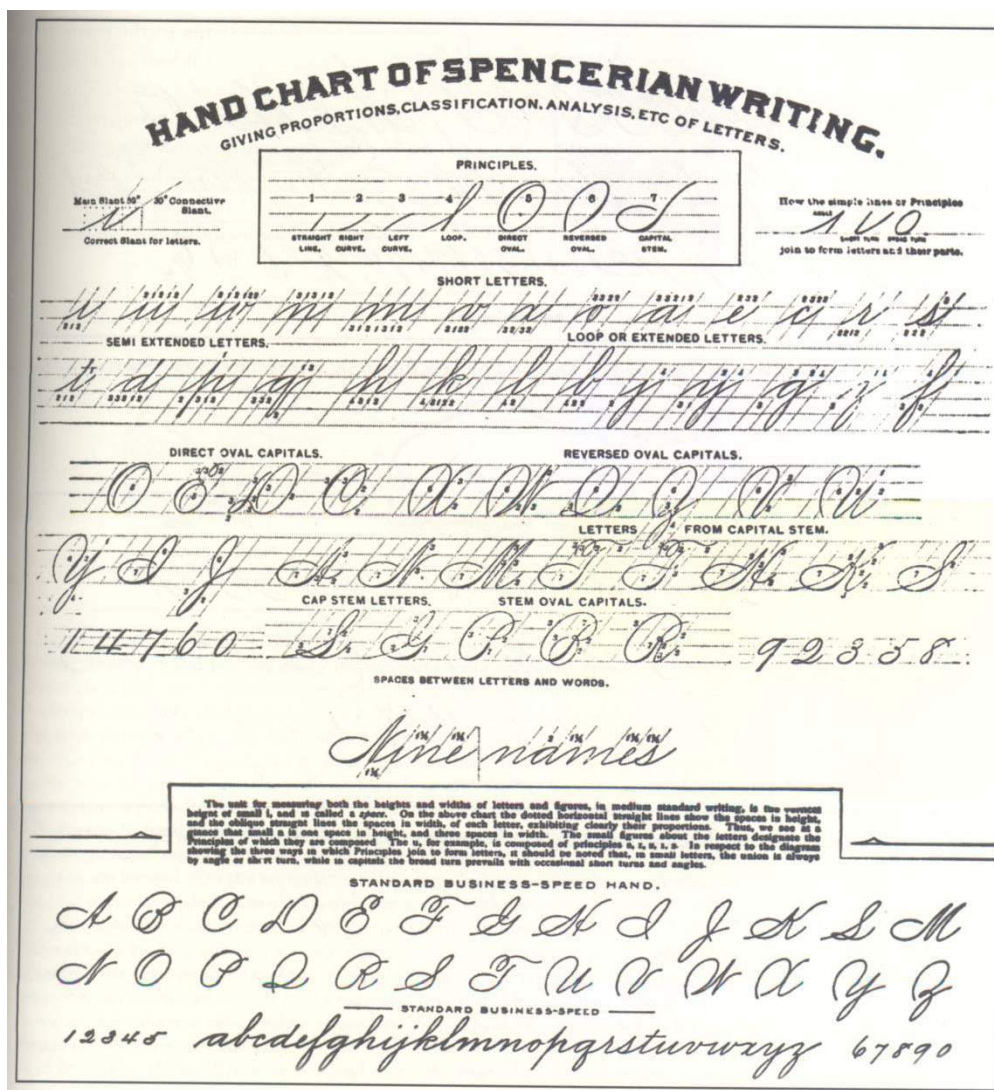 HAND CHART OF SPENCERIAN WRITING.
GIVING PROPORTIONS, CLASSIFICATION, ANALYSIS, ETC OF LETTERS.
PRINCIPLES.
1 2 3 4 5 6 7
STRAIGHT LINE. RIGHT CURVE. LEFT CURVE. LOOP. DIRECT OVAL. REVERSED OVAL. CAPITAL STEM.
Main Slant 52° 30° Connective Slant.
Correct Slant for letters.
How the simple lines or Principles
join to form letters and their parts.
SHORT LETTERS.
i u w n m v x o a e c r s
SEMI EXTENDED LETTERS. LOOP OR EXTENDED LETTERS.
t d p q h k l b j y g z f
DIRECT OVAL CAPITALS. REVERSED OVAL CAPITALS.
O E D C X W Q Z V U
LETTERS FROM CAPITAL STEM.
Y I J A N M T F H K S
CAP STEM LETTERS. STEM OVAL CAPITALS.
1 4 7 6 0 S G P B R 9 2 3 5 8
SPACES BETWEEN LETTERS AND WORDS.
Nine names
The unit for measuring both the heights and widths of letters and figures, in medium standard writing, is the vertical
height of small i, and is called a space. On the above chart the dotted horizontal straight lines show the spaces in height,
and the oblique straight lines the spaces in width, of each letter, exhibiting clearly their proportions. Thus, we see at a
glance that small n is one space in height, and three spaces in width. The small figures about the letters designate the
Principles of which they are composed The u, for example, is composed of principles 2, 1, 2, 1, 2. In respect to the diagram
showing the three ways in which Principles join to form letters, it should be noted that, in small letters, the union is always
by angle or short turn, while in capitals the broad turn prevails with occasional short turns and angles.
STANDARD BUSINESS-SPEED HAND.
A B C D E F G H I J K L M
N O P Q R S T U V W X Y Z
STANDARD BUSINESS-SPEED
1 2 3 4 5 abcdefghijklmnopqrstuvwxyz 6 7 8 9 0